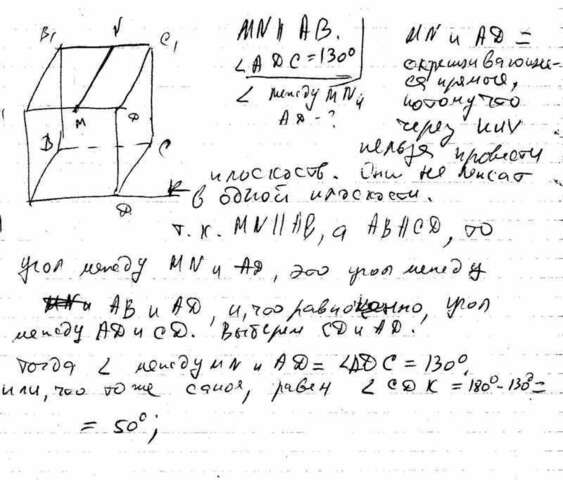 B₁ N C₁
M D
B C
K
D
MN ∥ AB.
∠ADC = 130°
∠ между MN и
AD - ?
MN и AD =
скрещивающие-
ся прямые,
потому что
через них
нельзя провести
плоскость. Они не лежат
в одной плоскости.
т.к. MN ∥ AB, а ABACD, то
угол между MN и AD, это угол между
AB и AD, и, что равноценно, угол
между AD и CD. Выберем CD и AD.
Тогда ∠ между MN и AD = ∠ADC = 130°,
или, что то же самое, равен ∠CDK = 180° - 130° =
= 50°;